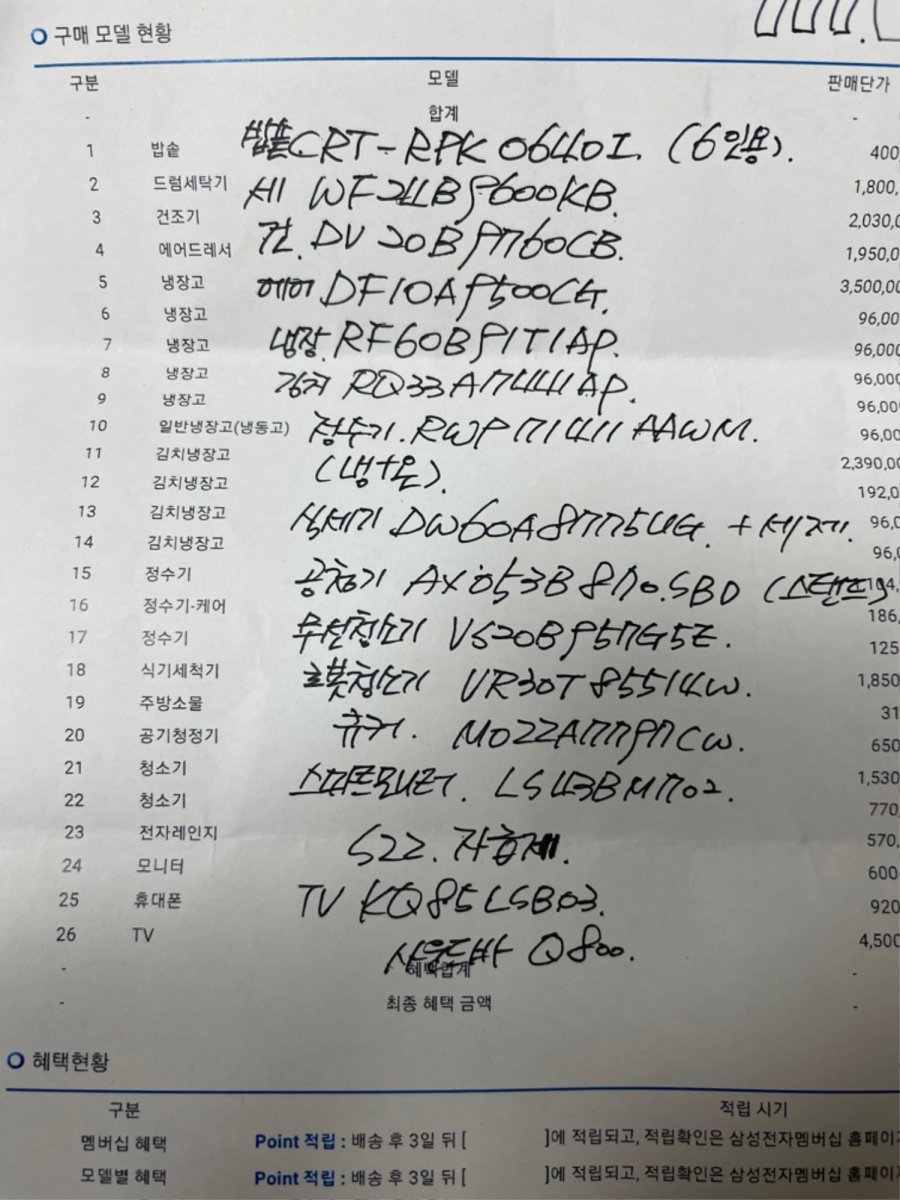 구매 모델 현황
구분 모델 판매단가
- 합계 -
1 밥솥 밥솥 CRT-RPK 0640I. (6인용). 400,
2 드럼세탁기 세 WF24B9600KB. 1,800,
3 건조기 건. DV20B9760CB. 2,030,0
4 에어드레서 1,950,0
5 냉장고 에어 DF10A9500CG. 3,500,00
6 냉장고 96,00
7 냉장고 냉장. RF60B91T1AP. 96,000
8 냉장고 김치 RQ33A7441AP. 96,000
9 냉장고 96,00
10 일반냉장고(냉동고) 정수기. RWP71411AAWM. 96,00
11 김치냉장고 (냉+온). 2,390,00
12 김치냉장고 192,0
13 김치냉장고 식세기 DW60A8775UG. + 세제. 96,0
14 김치냉장고 96,
15 정수기 공청기 AX053B870.SBD (스탠드)
16 정수기-케어 186,
17 정수기 무선청소기 VS20B957G5E. 125
18 식기세척기 로봇청소기 VR30T85514W. 1,850
19 주방소물 31
20 공기청정기 큐커. MO22A7797CW. 650
21 청소기 스마트모니터. LS43BM702. 1,530
22 청소기 770,
23 전자레인지 S22. 자급제. 570,
24 모니터 600
25 휴대폰 TV KQ85LSB03. 920
26 TV 4,500
- 사운드바 Q800. -
혜택합계
- 최종 혜택 금액 -
혜택현황
구분 적립 시기
멤버십 혜택 Point 적립 : 배송 후 3일 뒤 [ ]에 적립되고, 적립확인은 삼성전자멤버십 홈페이지
모델별 혜택 Point 적립 : 배송 후 3일 뒤 [ ]에 적립되고, 적립확인은 삼성전자멤버십 홈페이지